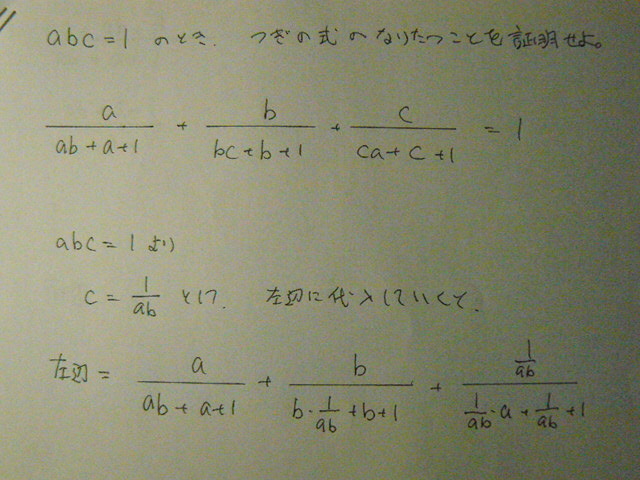 abc=1 のとき. つぎの式のなりたつことを証明せよ。
a/(ab+a+1) + b/(bc+b+1) + c/(ca+c+1) = 1
abc=1より
c=1/ab として. 左辺に代入していくと.
左辺= a/(ab+a+1) + b/(b・1/ab+b+1) + (1/ab)/(1/ab・a+1/ab+1)